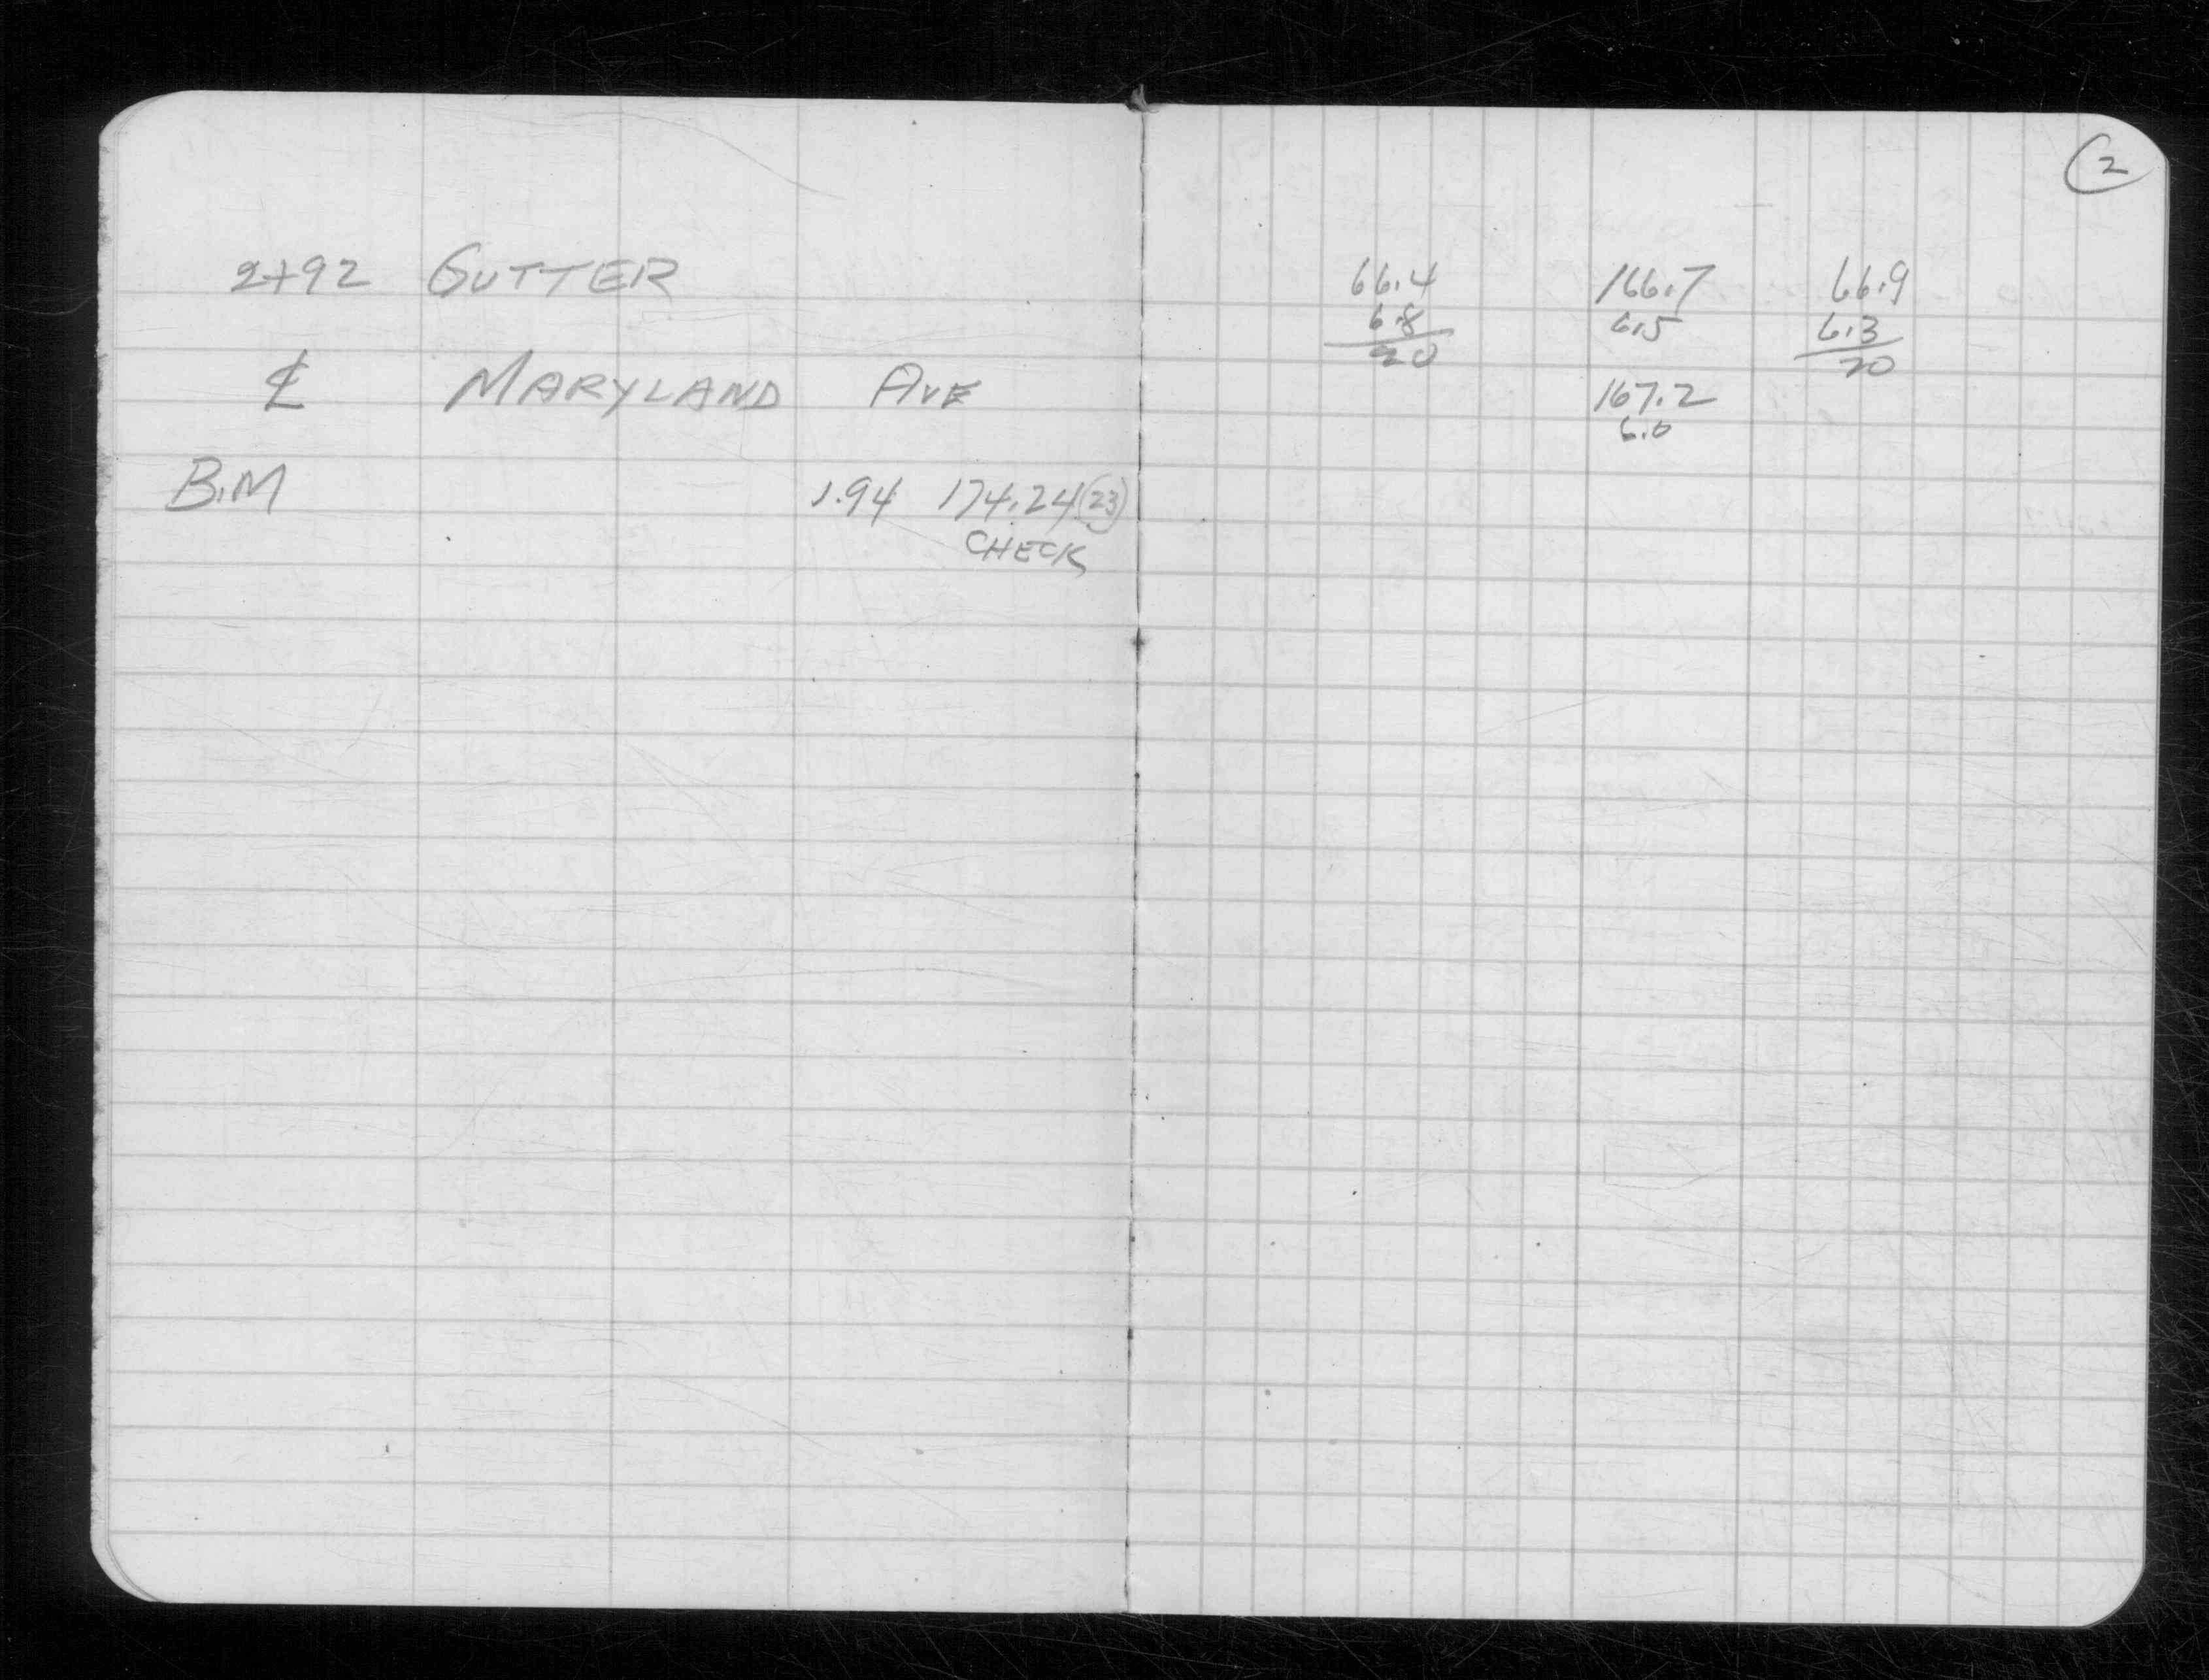 2
2+92 GUTTER 66.4 166.7 66.9
6.8 6.5 6.3
20 20
℄ MARYLAND AVE 167.2
6.0
B.M 1.94 174.24 (23)
CHECK